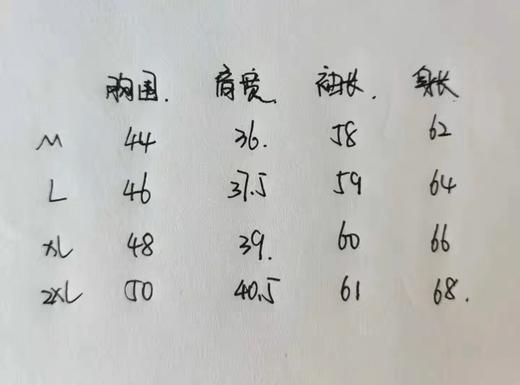 胸围. 肩宽. 袖长. 身长
M 44 36. 58 62
L 46 37.5 59 64
XL 48 39. 60 66
2XL 50 40.5 61 68.